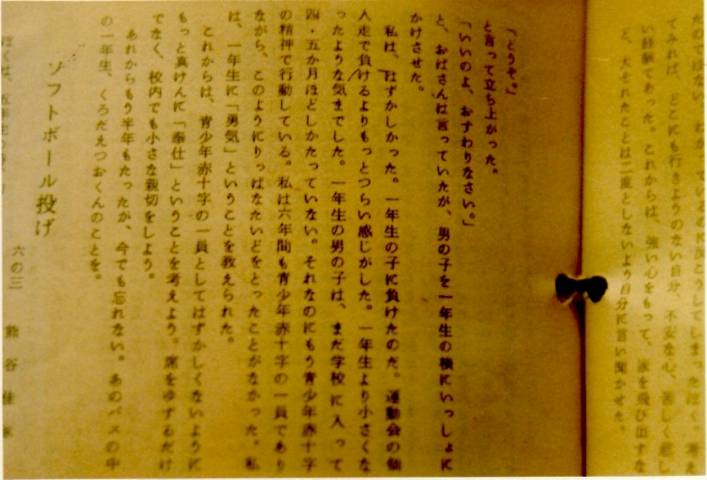 たのではない。わかっているのに反こうしてしまったぼく。考え
てみれば、どこにも行きようのない自分、不安な心、苦しく悲し
い経験であった。これからは、強い心をもって、家を飛び出すな
ど、大それたことは二度としないよう自分に言い聞かせた。
「どうぞ。」
と言って立ち上がった。
「いいのよ、おすわりなさい。」
と、おばさんは言っていたが、男の子を一年生の横にいっしょに
かけさせた。
私は、はずかしかった。一年生の子に負けたのだ。運動会の個
人走で負けるよりもっとつらい感じがした。一年生より小さくな
ったような気までした。一年生の男の子は、まだ学校に入って
四・五か月ほどしかたっていない。それなのにもう青少年赤十字
の精神で行動している。私は六年間も青少年赤十字の一員であり
ながら、このようにりっぱなたいどをとったことがなかった。私
は、一年生に「勇気」ということを教えられた。
これからは、青少年赤十字の一員としてはずかしくないように
もっと真けんに「奉仕」ということを考えよう。席をゆずるだけ
でなく、校内でも小さな親切をしよう。
あれからもう半年もたったが、今でも忘れない。あのバスの中
の一年生、くろだえつおくんのことを。
ソフトボール投げ
六の三 熊谷佳
ぼくは、五年生の